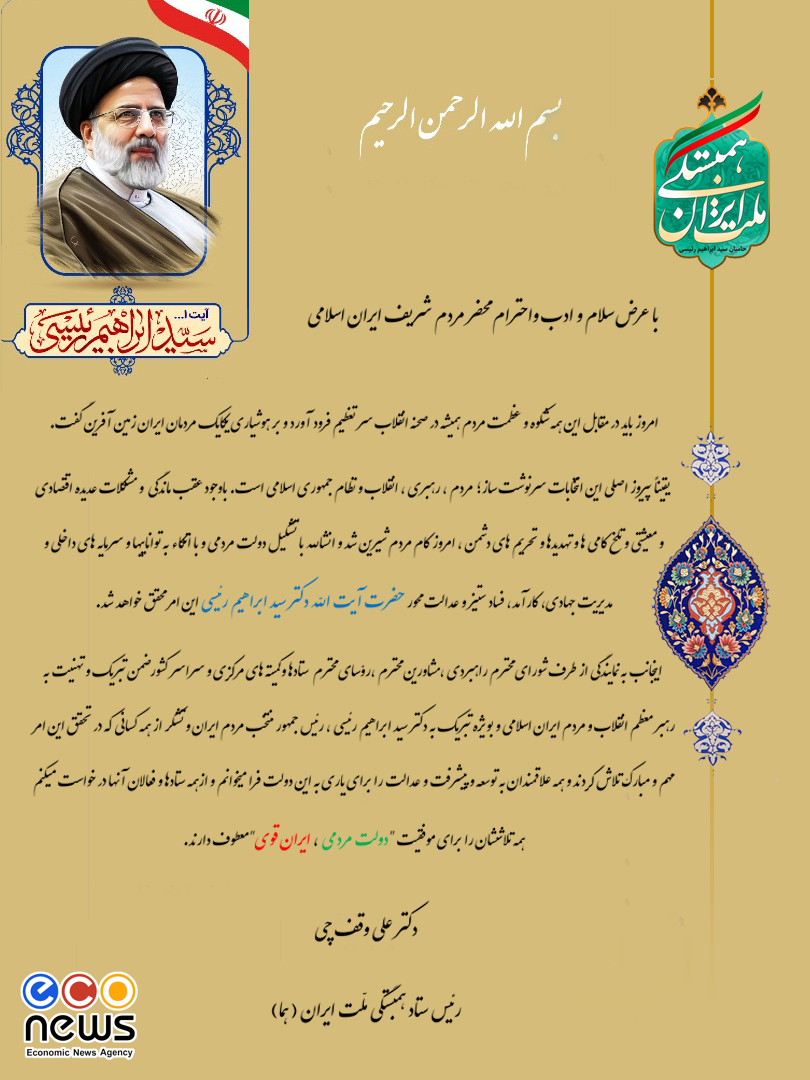 بسم الله الرحمن الرحیم
همبستگی
ملت ایران
حامیان سید ابراهیم رئیسی
آیت ا...
سید ابراهیم رئیسی
با عرض سلام و ادب واحترام محضر مردم شریف ایران اسلامی
امروز باید در مقابل این همه شکوه و عظمت مردم همیشه در صحنه انقلاب سر تعظیم فرود آورد و بر هوشیاری یکایک مردمان ایران زمین آفرین گفت.
یقیناً پیروز اصلی این انتخابات سرنوشت ساز؛ مردم ، رهبری ، انقلاب و نظام جمهوری اسلامی است. باوجود عقب ماندگی و مشکلات عدیده اقتصادی
و معیشتی و تلخ کامی ها و تهدیدها و تحریم های دشمن ، امروز کام مردم شیرین شد و انشالله با تشکیل دولت مردمی و با اتکاء به تواناییها و سرمایه های داخلی و
مدیریت جهادی، کارآمد ، فساد ستیز و عدالت محور حضرت آیت الله دکتر سید ابراهیم رئیسی این امر محقق خواهد شد.
اینجانب به نمایندگی از طرف شورای محترم راهبردی ،مشاورین محترم ،رؤسای محترم ستادها و کمیته های مرکزی و سراسر کشور ضمن تبریک و تهنیت به
رهبر معظم انقلاب و مردم ایران اسلامی و بویژه تبریک به دکتر سید ابراهیم رئیسی ، رئیس جمهور منتخب مردم ایران و تشکر از همه کسانی که در تحقق این امر
مهم و مبارک تلاش کردند و همه علاقمندان به توسعه و پیشرفت و عدالت را برای یاری به این دولت فرا میخوانم و از همه ستادها و فعالان آنها درخواست میکنم
همه تلاششان را برای موفقیت "دولت مردمی ، ایران قوی" معطوف دارند.
دکتر علی وقف چی
رئیس ستاد همبستگی ملّت ایران (هما)
eco
news
Economic News Agency